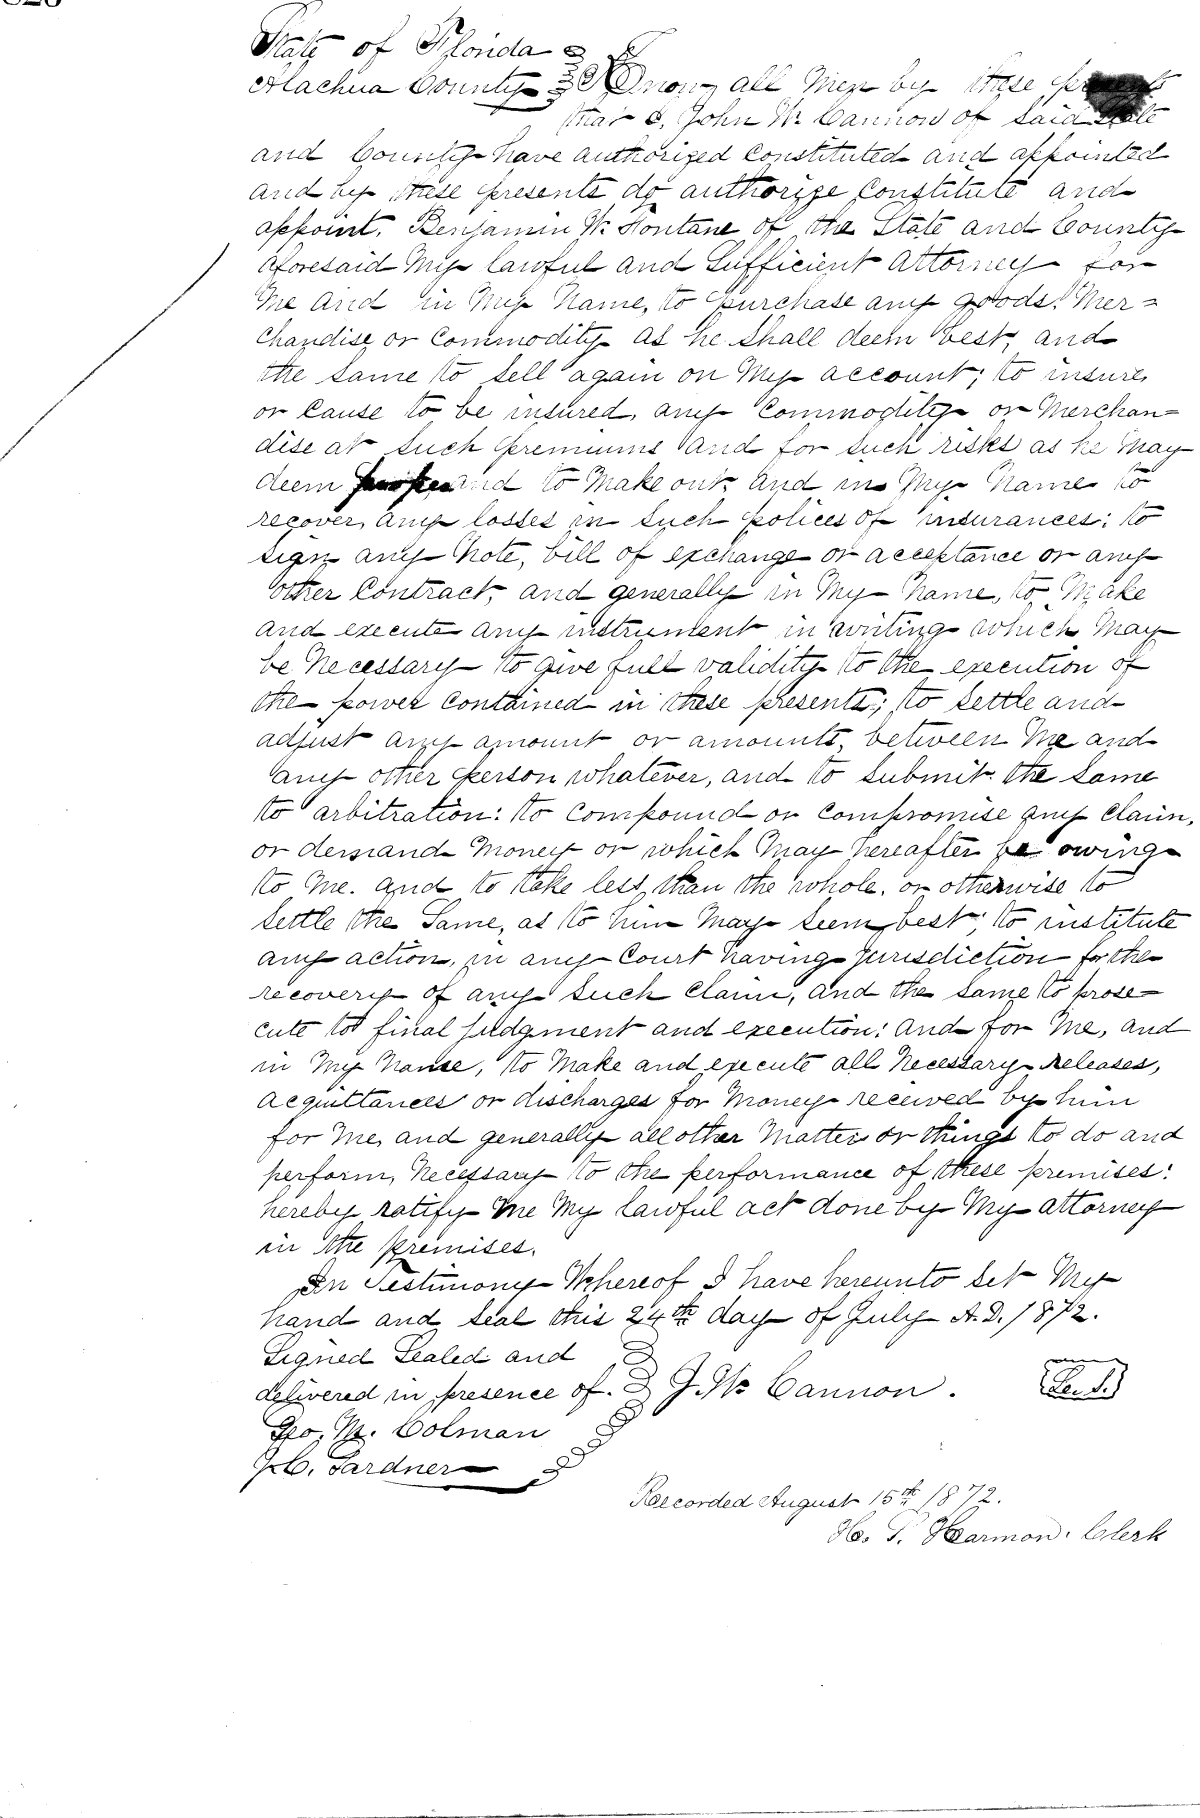 State of Florida
Alachua County Know all Men by these presents
that I, John W. Cannon of Said State
and County have authorized constituted and appointed
and by these presents do authorize constitute and
appoint. Benjamin W. Fontane of the State and County
aforesaid My lawful and Sufficient Attorney for
Me and in My Name, to purchase any goods, Mer=
chandise or commodity as he Shall deem best, and
the same to sell again on My account; to insure,
or cause to be insured, any commodity or Merchan=
dise at such premiums and for such risks as he May
deem proper and to Make out, and in My Name to
recover, any losses in such polices of insurances: to
sign any Note, bill of exchange or acceptance or any
other Contract, and generally in My Name, to Make
and execute any instrument in writing which May
be Necessary to give full validity to the execution of
the power contained in these presents; to settle and
adjust any amount or amounts, between Me and
any other person whatever, and to submit the same
to arbitration: to compound or compromise any claim,
or demand Money or which May hereafter be owing
to Me. and to take less than the whole. or otherwise to
settle the Same, as to him May seem best; to institute
any action, in any Court having jurisdiction for the
recovery of any such claim, and the same to prose=
cute to final judgment and execution: and for Me, and
in My Name, to Make and execute all Necessary releases,
acquittances or discharges for Money received by him
for Me, and generally all other Matters or things to do and
perform, Necessary to the performance of these premises:
hereby ratify Me My lawful act done by My attorney
in the premises.
In Testimony Whereof I have hereunto Set My
hand and Seal this 24th day of July A.D. 1872.
Signed Sealed and
delivered in presence of. J. W. Cannon. L.S.
Geo. M. Colman
J. C. Gardner
Recorded August 15th 1872.
H. S. Harmon. Clerk